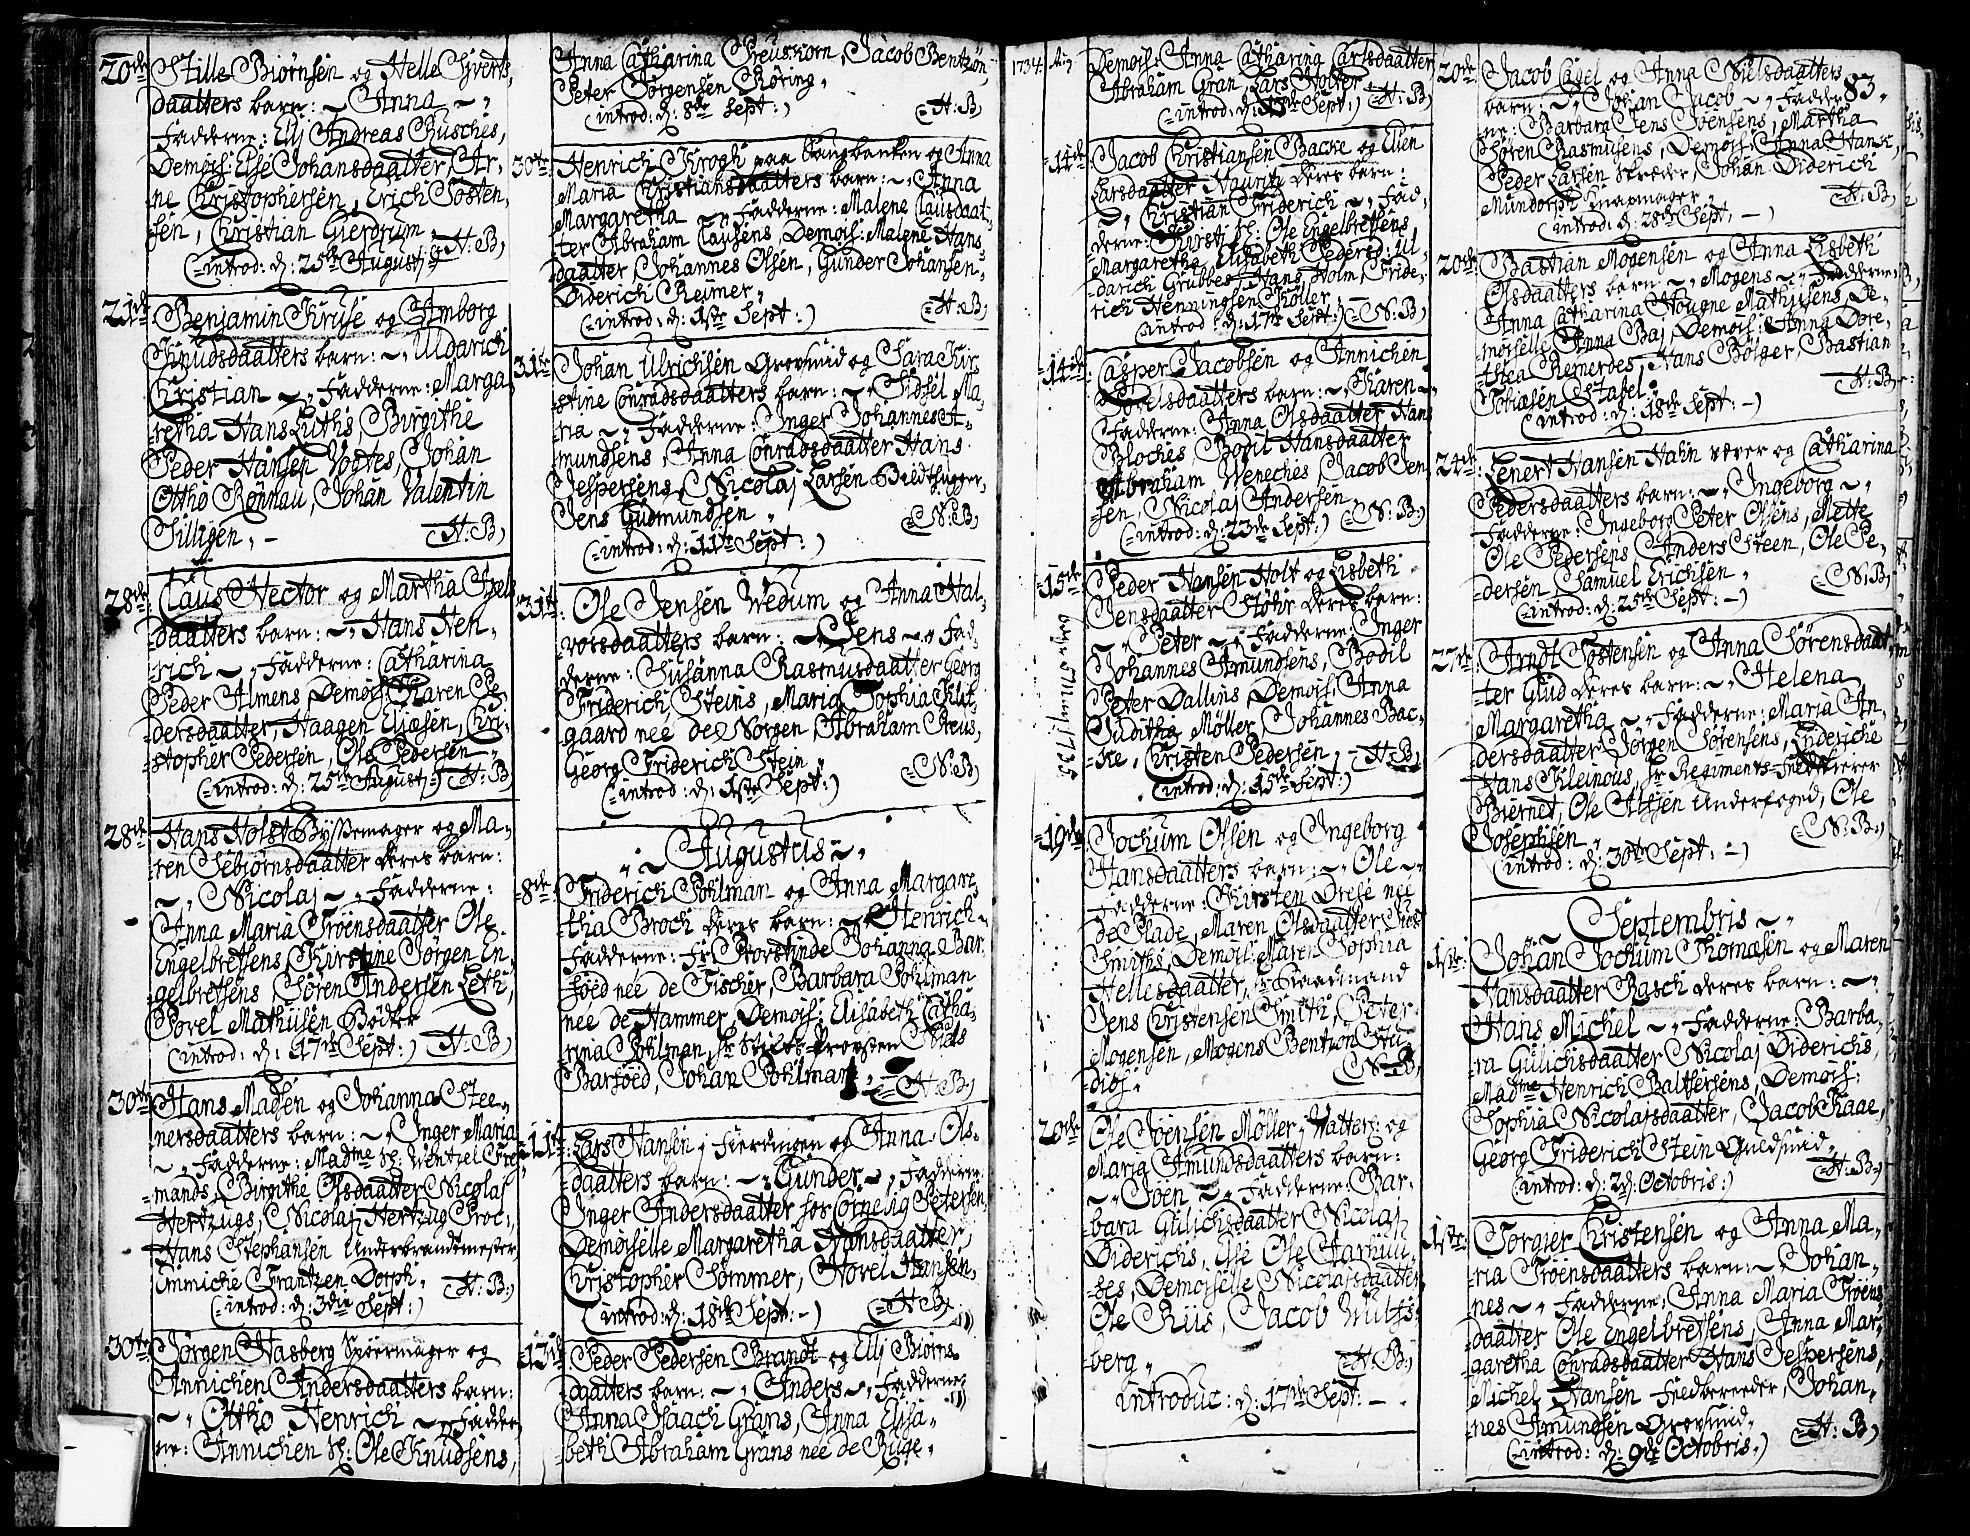 20de Stille Biørnsen og Helle Siverts,
daatters barn: ~ Anna ~,
Fadderne: Elj Andreas Rusches,
Demois: Else Johansdaatter, Ar-
ne Christophersen, Erich Tosten,
sen, Christian Gierdrum,
(introd: d: 25de Augustj:) H:B)
21de Benjamin Kruse og Amborg
Knudsdaatters barn: ~, Uldarich
Christian ~, Fadderne: Marga,
retha Hans Luths, Birgithe
Peder Hansen Vogtes, Johan
Ottho Rönnau, Johan Valentin
Silligen, - H:B)
28de Claus Hector og Martha Axels
daatters barn: ~, Hans Hen,
rich ~, Fadderne: Catharina
Peder Almens, Demois: Karen Pe,
dersdaatter, Haagen Eliæsen, Chri-
stopher Pedersen, Ole Pedersen
(introd: d: 25de Augustj:) H:B)
28de Hans Holst Byssemager og Ma-
ren Sebiørnsdaatter deres barn:
~, Nicolaj ~, Fadderne:
Anna Maria Troensdaatter Ole
Engelbretsens, Kirstine Jørgen En
gelbretsens, Søren Andersen Leth,
Povel Mathiisen Bødker
(introd: d: 17de Sept:) H:B)
30te Hans Madsen og Johanna Stee,
nersdaatters barn: ~, Inger Maria
~, Fadderne: Madme Sl: Wentzel Fre
mands, Birgithe Olsdaatter Nicolaj
Hertzugs, Nicolaj Hertzug Proc:,
Hans Stephansen Underbrandtmester
Emmiche Frantzen Dorph,
(introd: d: 3die Sept:) H:B)
30te Jørgen Hasberg Spøermager og
Annichen Andersdaatters barn:
~, Ottho Henrich ~, Fadder
ne: Annichen Sl: Ole Knudsens,
Anna Catharina Creutzkorn, Jacob Bentzön,
Peter Jörgensen Röring,
(introd: d: 8de Sept:) H:B)
30te Henrich Krogh paa Sangbanken og Anna
Maria Christiansdaatters barn: ~, Anna
Margaretha ~, Fadderne: Malene Clausdaat,
ter Abraham Clausens, Demois: Malene Hans,
daatter, Johannes Olsen, Gunder Johansen,
Diderich Reimer,
(introd: d: 1ste Sept:) H:B)
31te Johan Ulrichsen Grovsmid og Sara Kir
stine Conradsdaatters barn: ~, Sidsel Ma,
ria ~, Fadderne: Inger Johannes A-
mundsens, Anna Conradsdaatter Hans
Jespersens, Nicolaj Larsen Bildthugger,
Jens Gudmundsen, N:B)
(introd: d: 11te Sept:)
31te Ole Jensen Wedum og Anna Hal,
vorsdaatters barn: ~, Jens ~, Fad,
derne: Susanna Rasmusdaatter Georg
Friderich Steins, Maria Sophia Klat
gaard nee de Norgen, Abraham Preus,
Georg Friderich Stein, N:B)
(introd: d: 1ste Sept:)
Augustus
8de Friderich Pohlman og Anna Margare
tha Broch deres barn: ~, Henrich
Fadderne: Fr. Provstinde Johanna Bar,
foed nee de Fischer, Barbara Pohlman
nee de Hammer, Demois: Elisabeth Catha,
rina Pohlman, Hr Stifts-Provsten Niels
Barfoed, Johan Pohlman, H:B)
11te Lars Hansen j Fierdingen og Anna Ols,
daatters barn: ~, Gunder ~, Fadderne:
Inger Andersdaatter hos Corgelig Petersen
Demoiselle Margaretha Hansdaatter,
Christopher Sommer, Povel Hansen,
(introd: d: 18de Sept: -) H:B)
13de Peder Pedersen Brandt og Ellj Biørns
daatters barn: ~, Anders ~, Fadderne:
Anna Isaach Grans, Anna Elisa,
beth Abraham Grans nee de Ruge,
1734. Aug
Demois: Anna Catharina Carlsdaatter
Abraham Gran, Lars Wolter
(introd: d: 13de Sept:) H:B)
14de Jacob Christiansen Backe og Ellen
Larsdaatter Nauritz deres barn:
~, Christian Friderich ~, Fad,
derne: Kirstj Sl: Ole Engelbretsens
Margaretha Elisabeth Peders, Ul,
darich Grubbes, Hans Holm, Fride,
rich Henningsen Köller,
(introd: d: 17de Sept:) N:B)
14de Casper Jacobsen og Annichen
Povelsdaatters barn: ~, Karen ~
Fadderne: Anna Olsdaatter Hans
Bloches, Bodil Hansdaatter
Abraham Weneches, Jacob Jen
sen, Nicolaj Andersen
(introd: d: 23de Sept:) N:B)
15de Peder Hansen Holt og Lisbeth
Jensdaatter Støhr deres barn:
~, Peter ~, Fadderne: Inger
Johannes Amundsens, Bodil
Peter Dallins, Demois: Anna
Juditha Møller, Johannes Bac,
ke, Christen Pedersen, H:B)
(introd: d: 15de Sept:)
19de Jochum Olsen og Ingeborg
Hansdaatters barn: ~, Ole ~,
Fadderne: Kirsten Drese nee
de Plade, Maren Olsdaatter Just
Smiths, Demois: Maren Sophia
Hellesdaatter, Hr Raadmand
Jens Christensen Smith, Peter
Mogensen, Mogens Bentzon Stu
dios. N:B)
20de Ole Joensen Møller, Watter: og
Maria Amundsdaatters barn:
~, Joen ~, Fadderne: Bar,
bara Gulichsdaatter Nicolaj
Diderichs, Else Ole Aarhuu,
ses, Demoiselle Nicolajsdaatter
Ole Riis, Jacob Wulfs,
berg, H:B)
introduc: d: 17de Sept: -
83.
20de Jacob Cagel og Anna Nielsdaatters
barn: ~, Johan Jacob ~, Fadder
ne: Barbara Jens Ivensens, Martha
Søren Rasmusens, Demois: Anna Hansd,
Peder Larsen skræder, Johan Diderich
Mundorph Knapmager,
(introd: d: 28de Sept. -) H:B)
20de Bastian Mogensen og Anna Lisbeth
Olsdaatters barn ~, Mogens ~, Fadderne:
Anna Catharina Hougne Mathiisens, De,
moiselle Anna Baj, Demois: Anna Dore,
thea Remerdes, Hans Bölger, Bastian
Tobiæsen Stabel. H:B)
(introd: d: 18de Sept: -)
24de Lenert Hansen Hahn væver og Catharina
Pedersdaatters barn: ~, Ingeborg ~,
Fadderne: Ingeborg Peter Olsens, Mette
Ole Pedersens, Anders Steen, Ole Pe,
dersen, Samuel Erichsen, N:B)
(introd: d: 25de Sept: -)
27de Arndt Tostensen og Anna Sørensdaat,
ter Gud deres barn: ~, Helena
Margaretha ~, Fadderne: Maria An,
dersdaatter Jørgen Sørensens, Enderiche
Hans Kleinous, Hr Regiments-Feldskierer
Biernet, Ole Alssen Underfoged, Ole
Josephsen, N:B)
(introd: d: 30te Sept: -)
Septembris ~,
1ste Johan Jochum Thomæsen og Maren
Hansdaatter Rasch deres barn: ~,
Hans Michel ~, Fadderne: Barba,
ra Gulichsdaatter Nicolaj Diderichs,
Madme Henrich Baltzersens, Demois:
Sophia Nicolajsdaatter, Jacob Kaae,
Georg Friderich Stein Guldsmid,
(introd: d: 2d: Octobris:) H:B)
1ste Torgier Christensen og Anna Ma,
ria Troensdaatters barn: ~, Johan,
nes ~, Fadderne: Anna Maria Troens
daatter Ole Engelbretsens, Anna Mar,
garetha Conradsdaatter Hans Jespersens,
Michel Hansen Feldbereeder, Johan,
nes Amundsen Grovsmid, H:B)
(introd: d: 9de Octobris.)